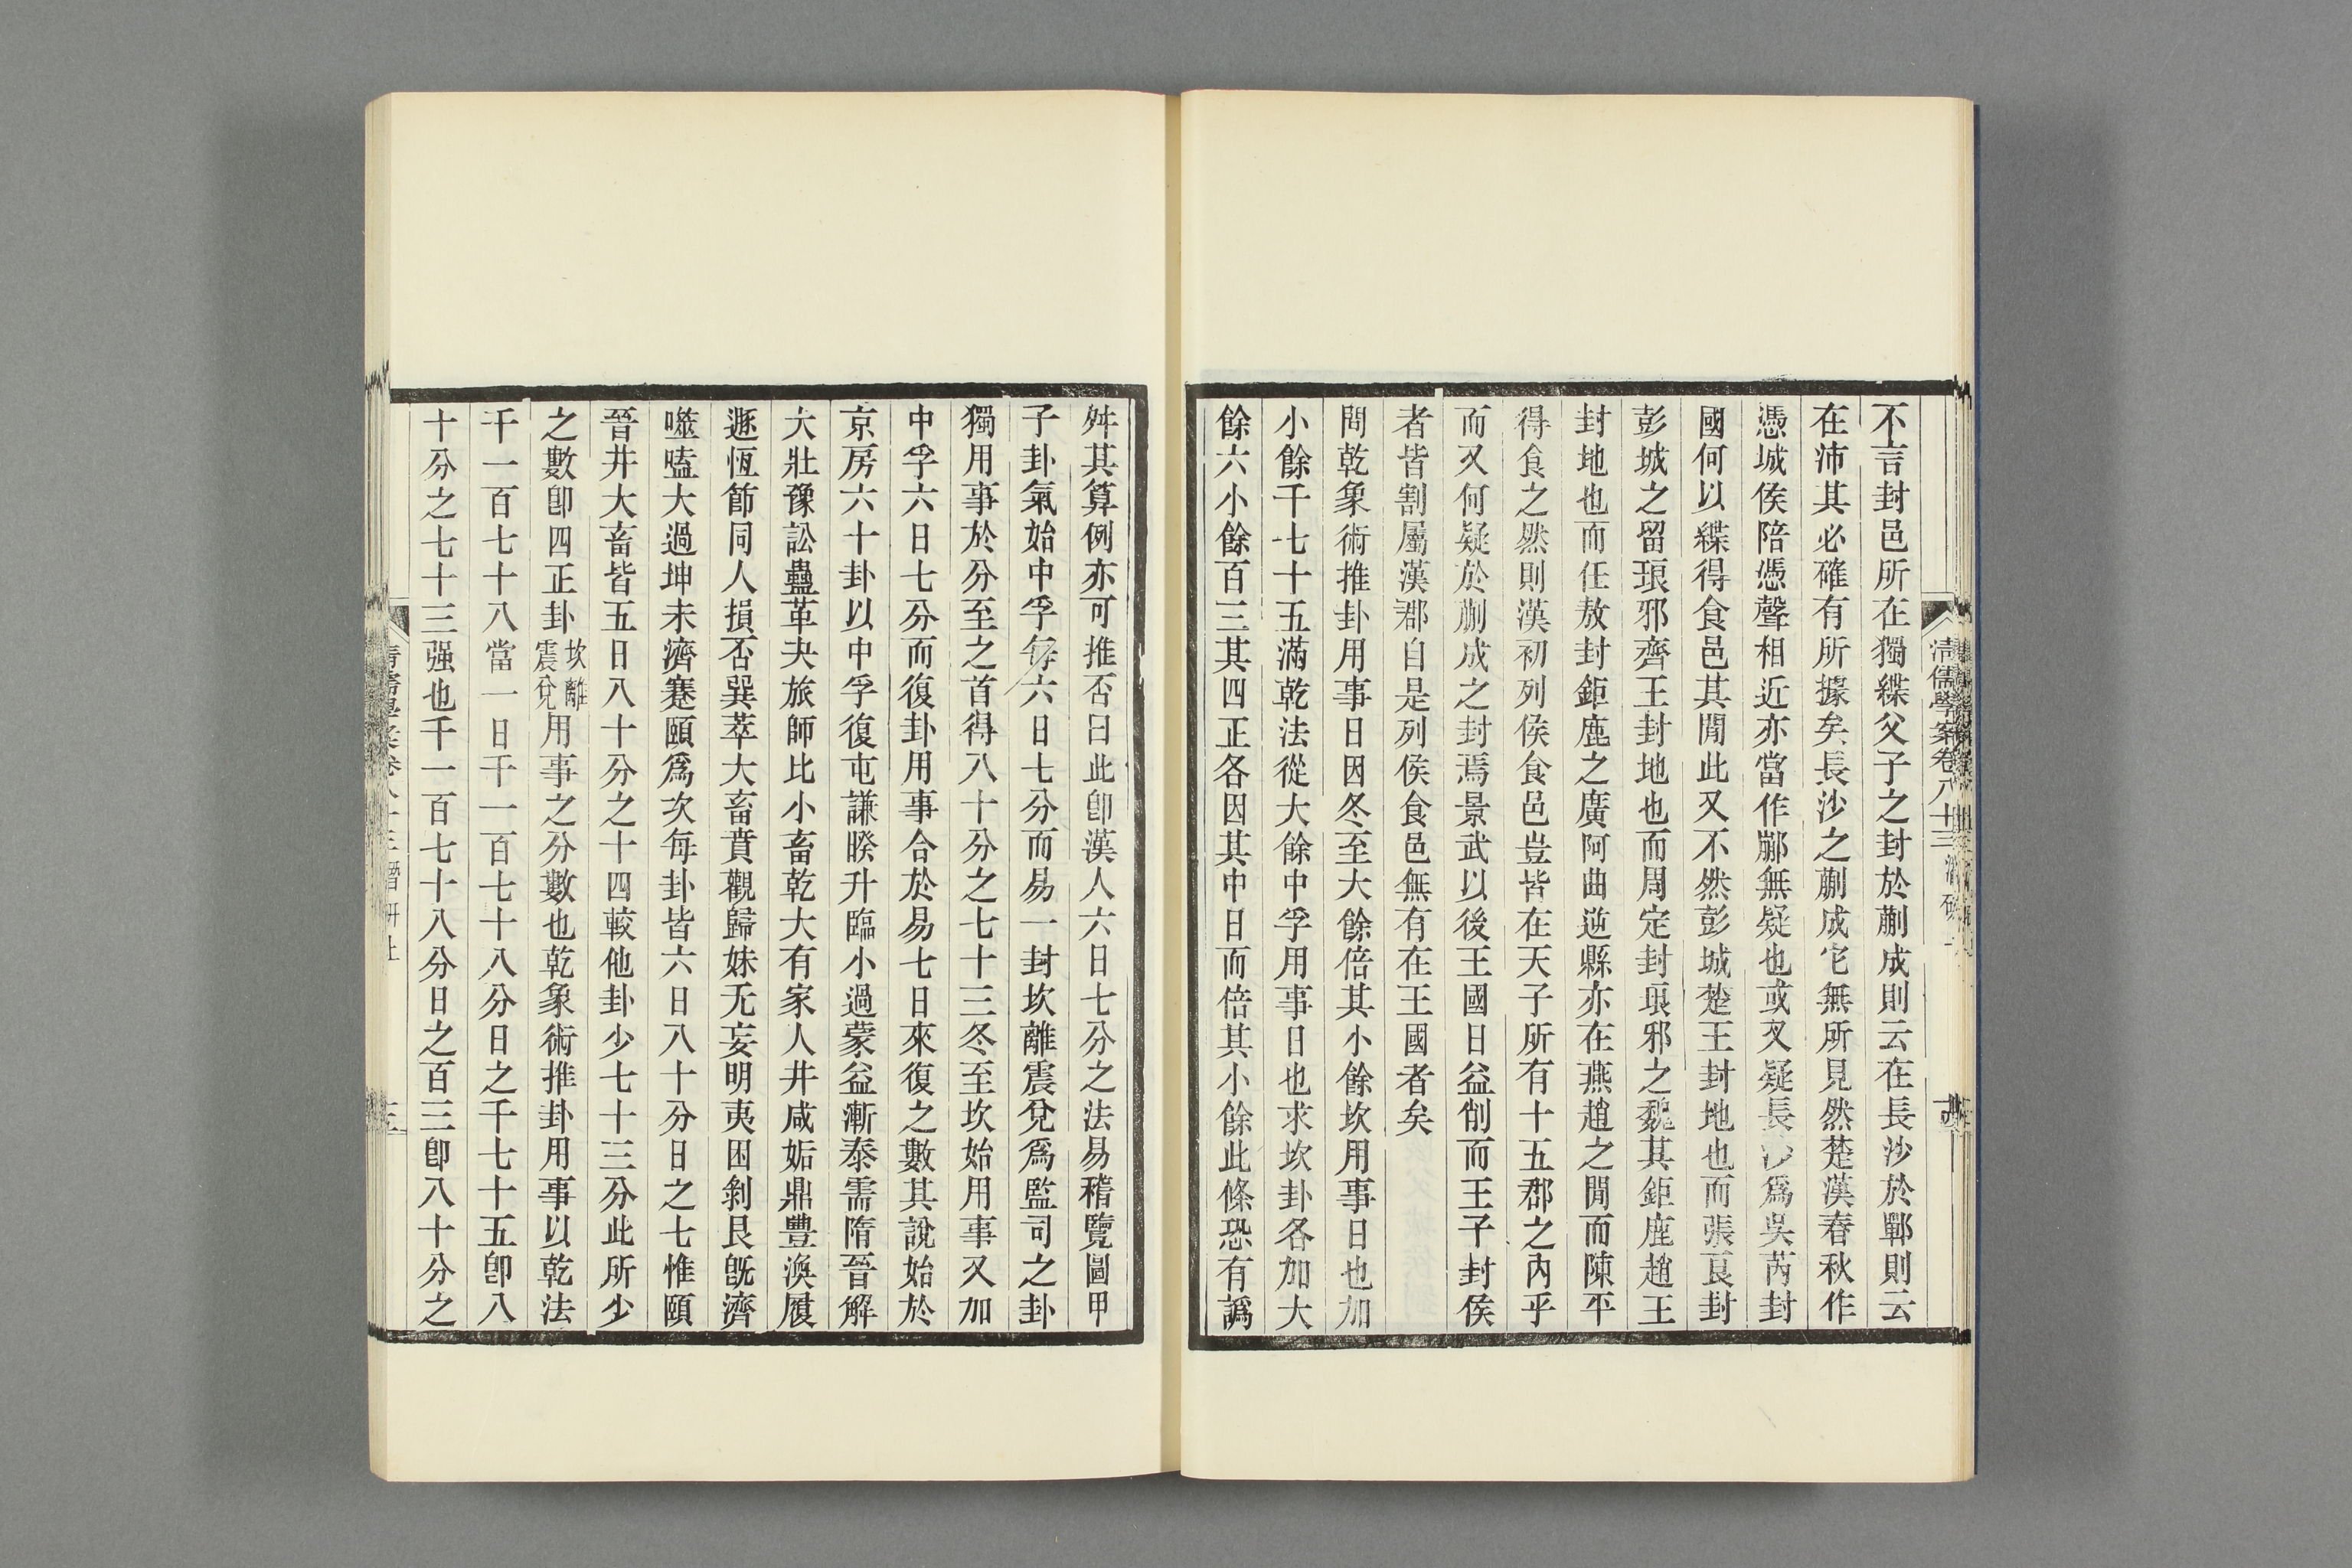 不言封邑所在獨緤父子之封於蒯成則云在長沙於鄲則云
在沛其必確有所據矣長沙之蒯成它無所見然楚漢春秋作
憑城侯陪憑聲相近亦當作鄘無疑也或又疑長沙爲吳芮封
國何以緤得食邑其閒此又不然彭城楚王封地也而張良封
彭城之留琅邪齊王封地也而周定封琅邪之魏其鉅鹿趙王
封地也而任敖封鉅鹿之廣阿曲逆縣亦在燕趙之閒而陳平
得食之然則漢初列侯食邑豈皆在天子所有十五郡之內乎
而又何疑於蒯成之封焉景武以後王國日益削而王子封侯
者皆割屬漢郡自是列侯食邑無有在王國者矣
問乾象術推卦用事日因冬至大餘倍其小餘坎用事日也加
小餘千七十五滿乾法從大餘中孚用事日也求坎卦各加大
餘六小餘百三其四正各因其中日而倍其小餘此條恐有譌
舛其算例亦可推否曰此卽漢人六日七分之法易稽覽圖甲
子卦氣始中孚每六日七分而易一封坎離震兌爲監司之卦
獨用事於分至之首得八十分之七十三冬至坎始用事又加
中孚六日七分而復卦用事合於易七日來復之數其說始於
京房六十卦以中孚復屯謙睽升臨小過蒙益漸泰需隋晉解
大壯豫訟蠱革夬旅師比小畜乾大有家人井咸姤鼎豐渙履
遯恆節同人損否巽萃大畜賁觀歸妹无妄明夷困剝艮旣濟
噬嗑大過坤未濟蹇頤爲次每卦皆六日八十分日之七惟頤
晉井大畜皆五日八十分之十四較他卦少七十三分此所少
之數卽四正卦坎離震兌用事之分數也乾象術推卦用事以乾法
千一百七十八當一日千一百七十八分日之千七十五卽八
十分之七十三强也千一百七十八分日之百三卽八十分之
清儒學案卷八十三